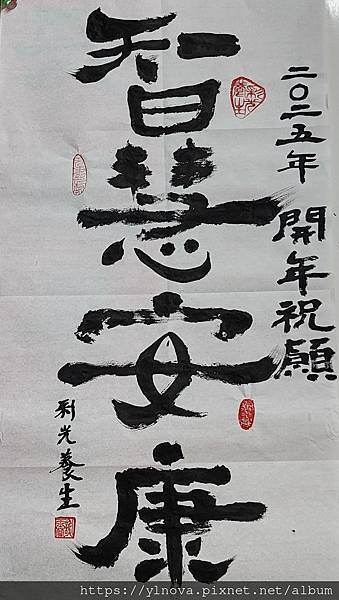 二〇二五年 開年祝願
智慧安康
彩光養生
https://ylnova.pixnet.net/album